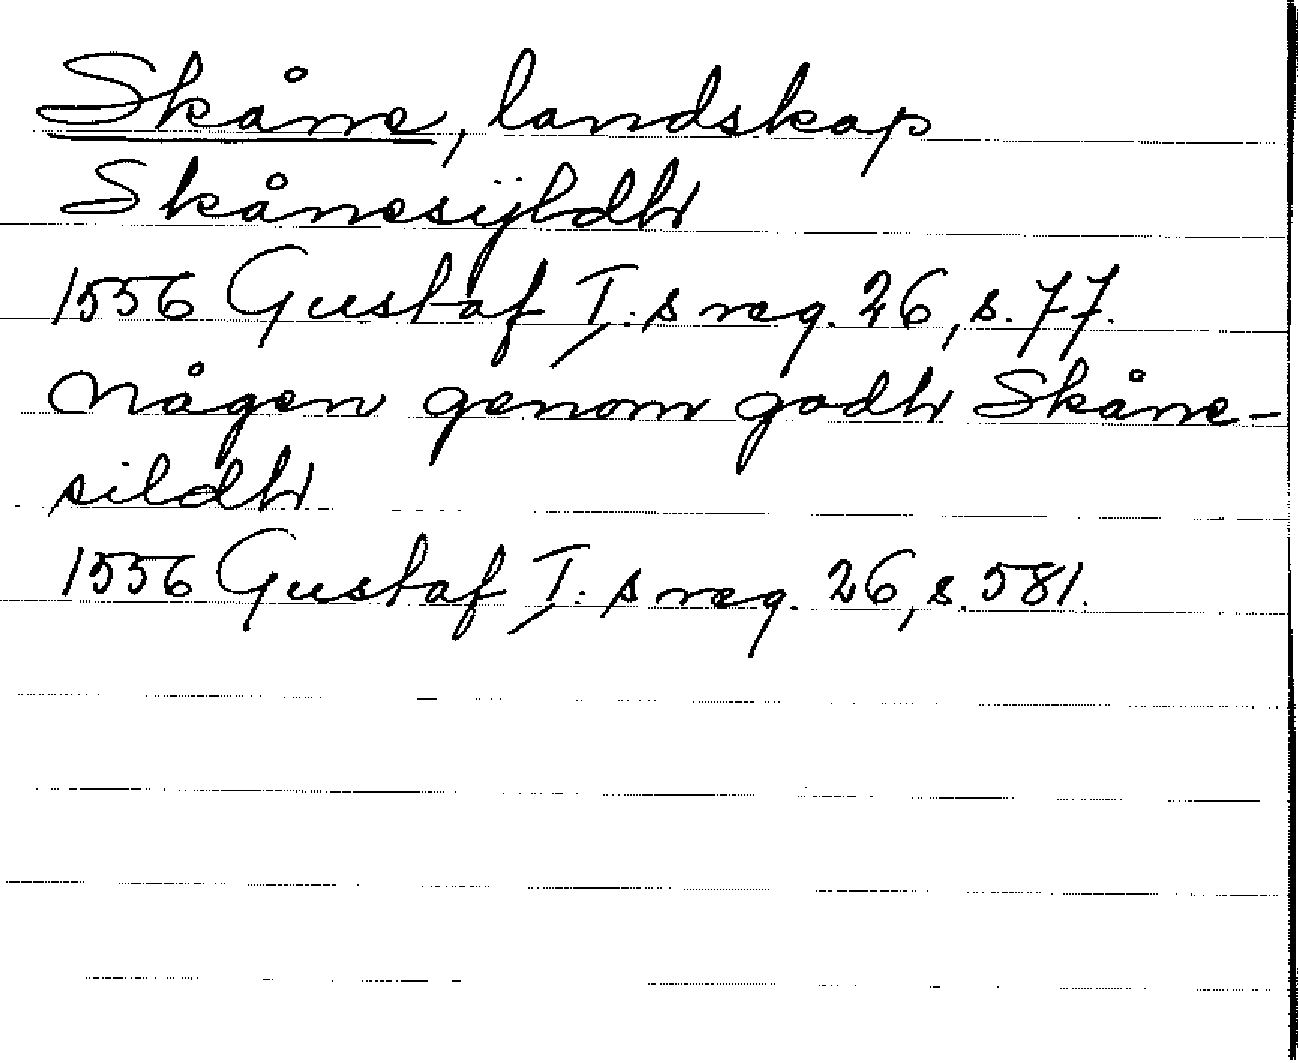 Skåne, landskap
Skånesÿldh
1556 Gustaf I:s reg. 26, s. 77.
någen genom godh Skåne-
sildh
1556 Gustaf I:s reg. 26, s. 581.